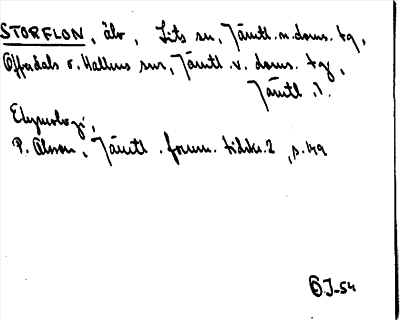 STORFLON, älv, Lits sn, Jämtl. n. doms. tg,
Offerdals o. Hallens snr, Jämtl. v. doms. tg,
Jämtl. l.
Etymologi,
P. Olsson, Jämtl. fornm. tidskr. 2, s. 149
O.J-54